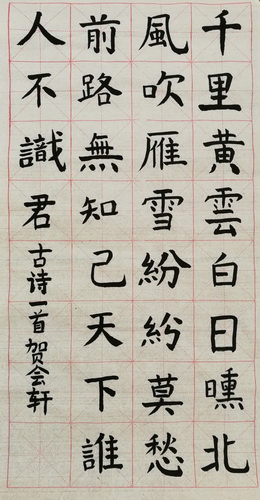 千里黄雲白日曛北
風吹雁雪紛紛莫愁
前路無知己天下誰
人不識君
古诗一首贺会轩